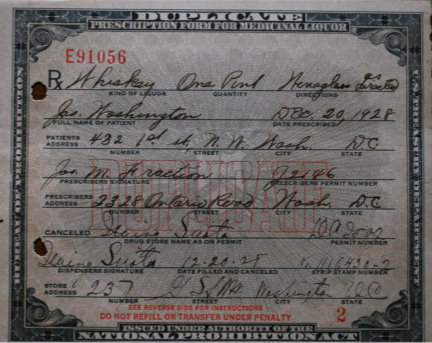 DUPLICATE
PRESCRIPTION FORM FOR MEDICINAL LIQUOR
E91056
Rx Whiskey One Pint
KIND OF LIQUOR QUANTITY DIRECTIONS
Washington Dec. 20, 1928
FULL NAME OF PATIENT DATE PRESCRIBED
PATIENTS ADDRESS 432 st. N. W. Wash. D.C.
NUMBER STREET CITY STATE
Jas. M.
PRESCRIBERS SIGNATURE PRESCRIBERS PERMIT NUMBER
PRESCRIBERS ADDRESS 2328 Ontario Road Wash. D.C.
NUMBER STREET CITY STATE
CANCELED
DRUG STORE NAME AS ON PERMIT PERMIT NUMBER
12-20-28
DISPENSERS SIGNATURE DATE FILLED AND CANCELED STRIP STAMP NUMBER
STORE ADDRESS 237 Washington D.C.
NUMBER STREET CITY STATE
SEE REVERSE SIDE FOR INSTRUCTIONS
DO NOT REFILL OR TRANSFER UNDER PENALTY 2
ISSUED UNDER AUTHORITY OF THE
NATIONAL PROHIBITION ACT